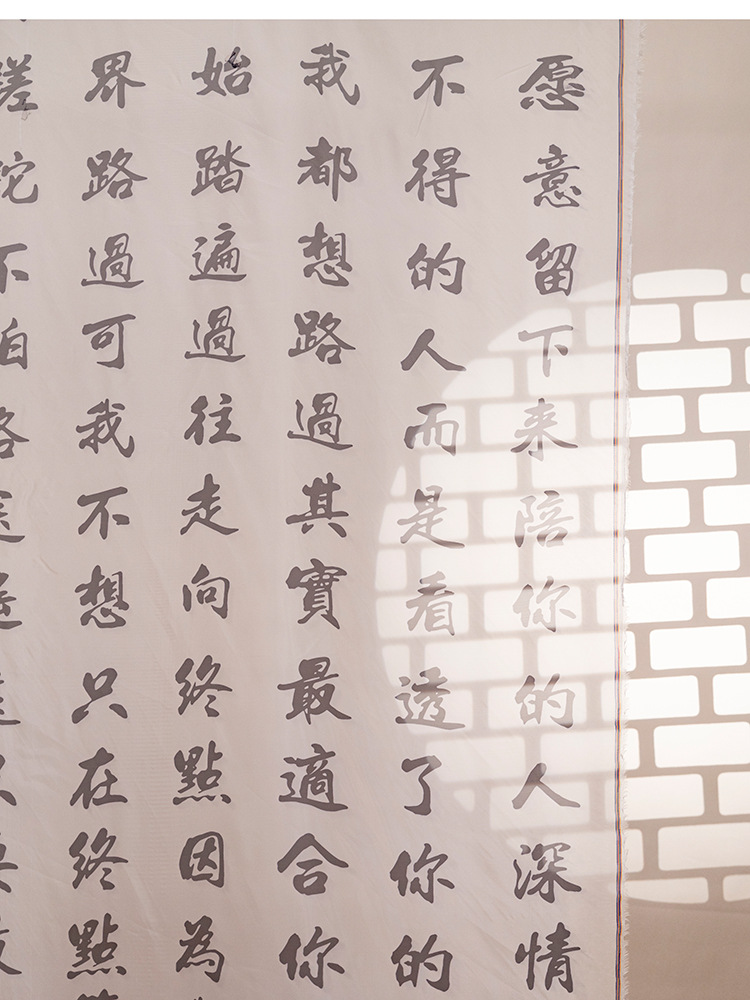 愿意留下来陪你的人深情
不得的人而是看透了你的
我都想路過其實最適合你
始踏遍過往走向終點因為
界路過可我不想只在終點